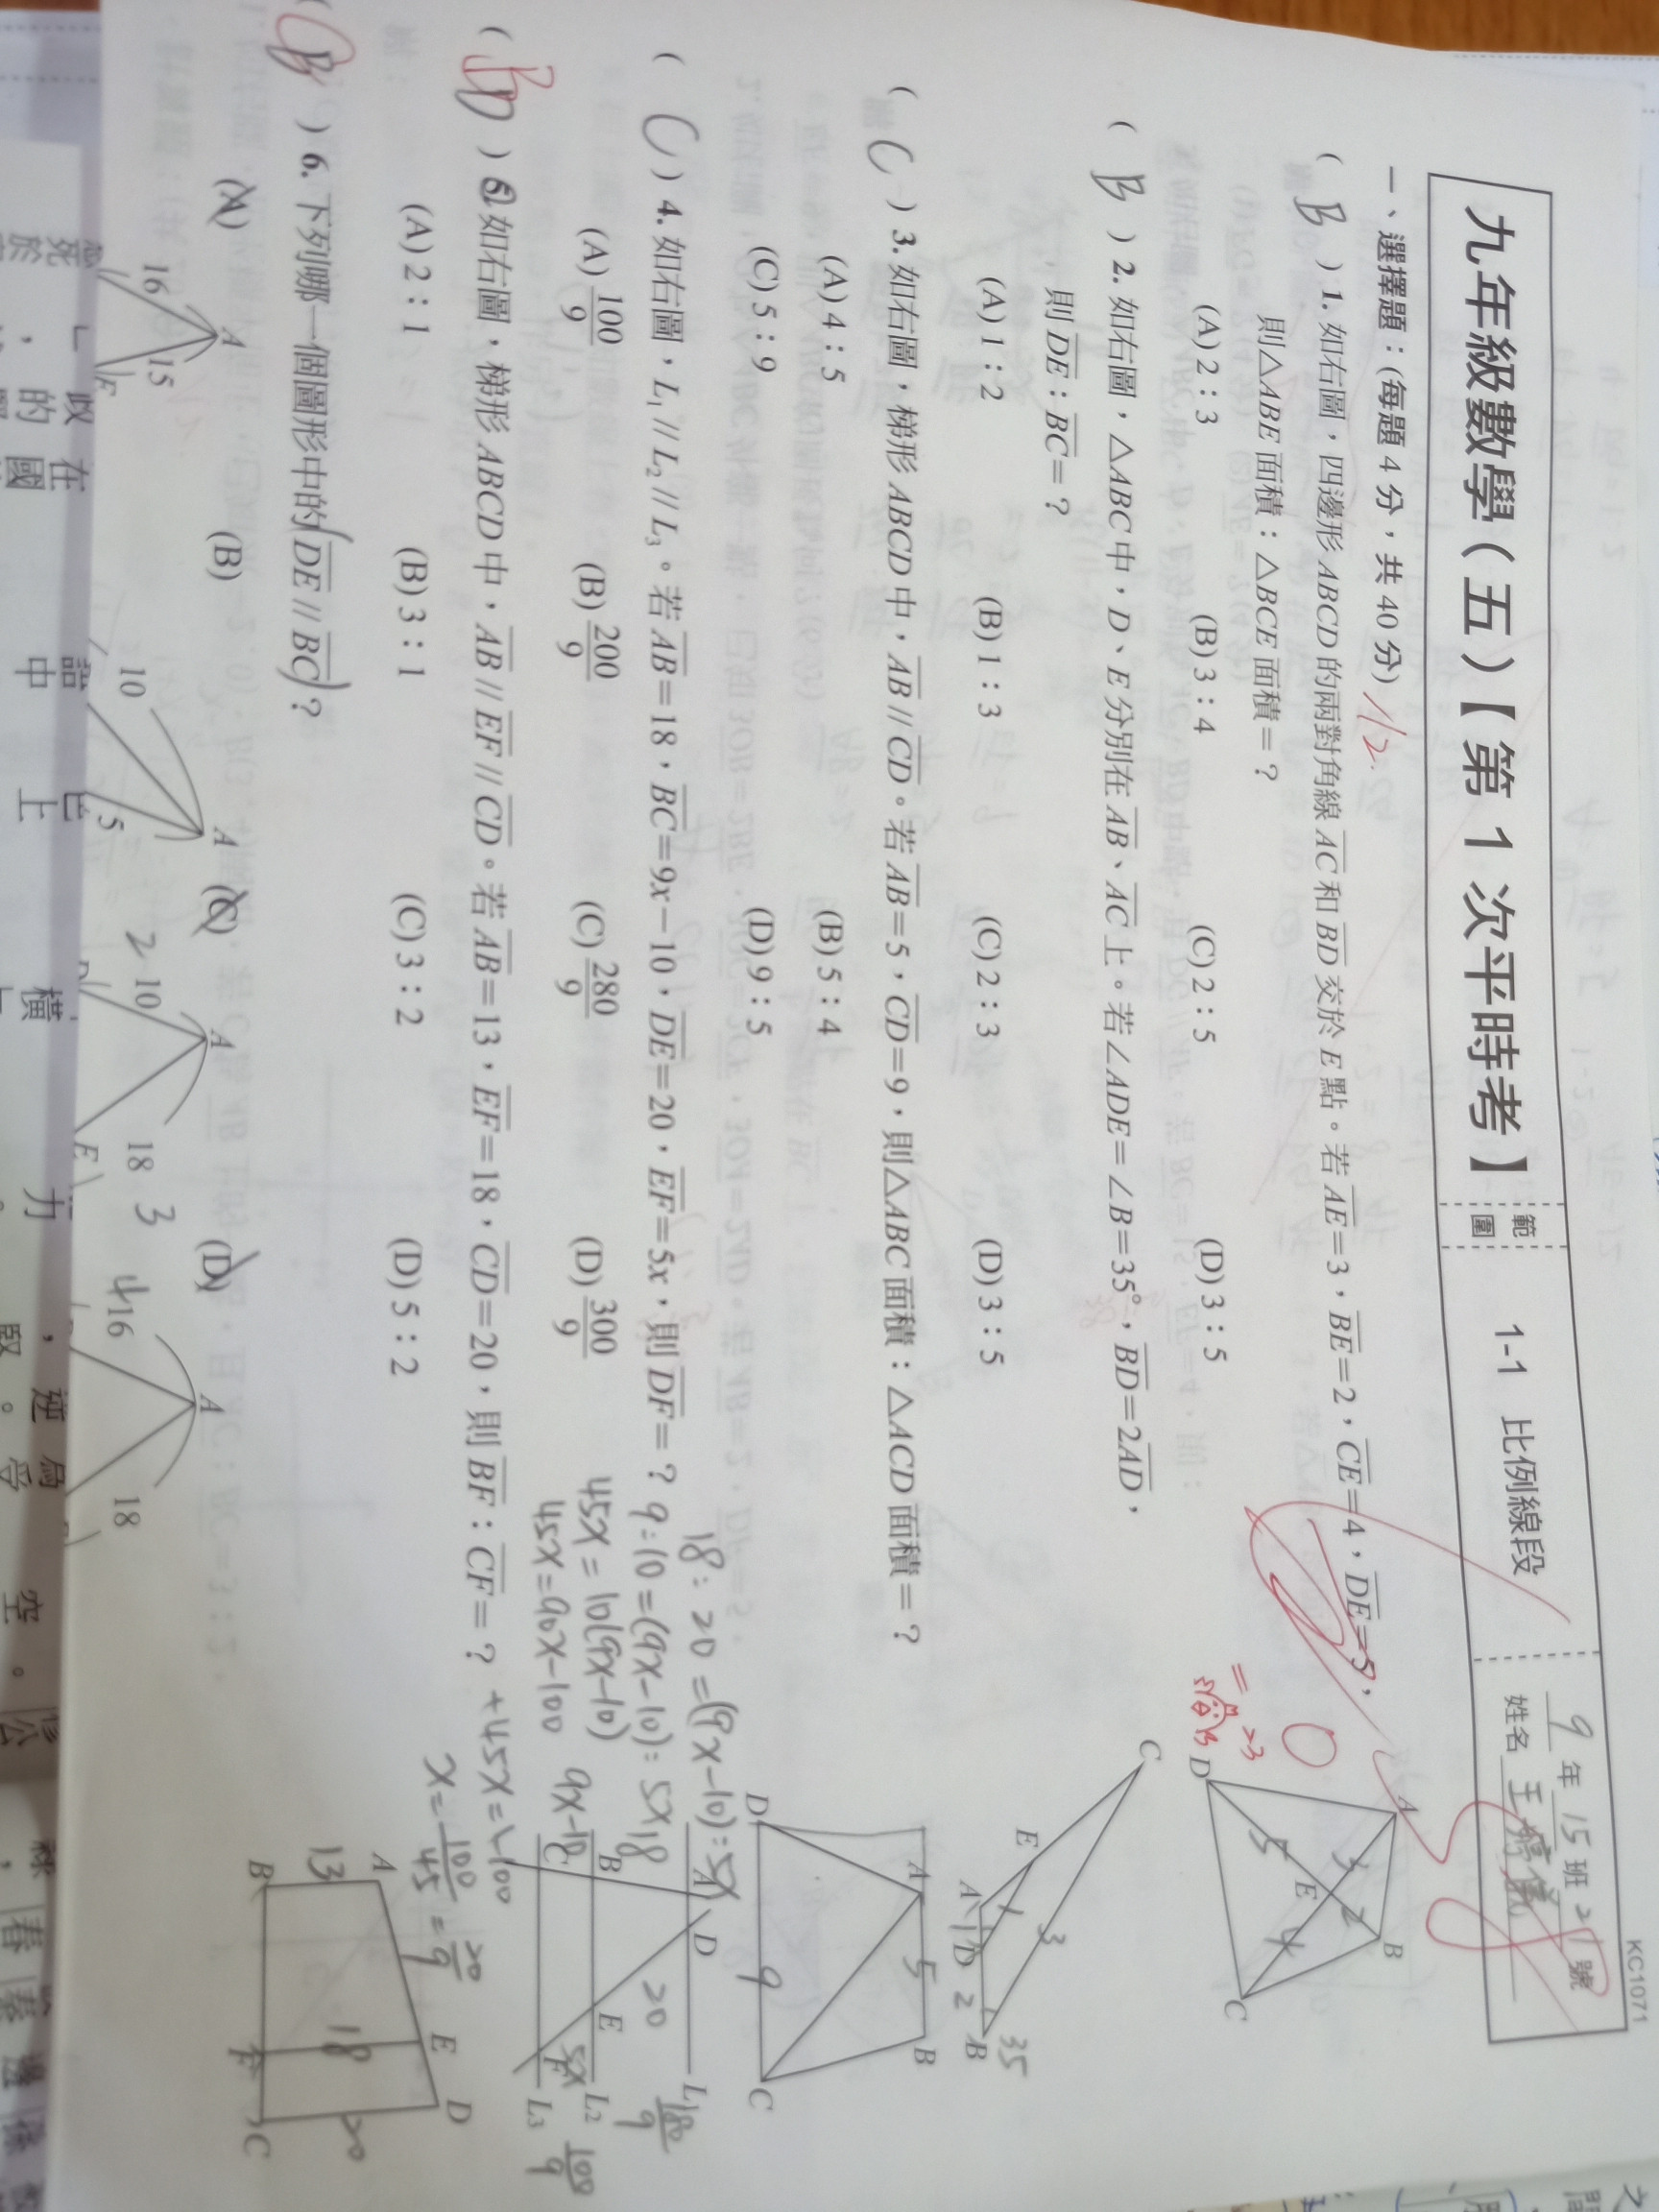 KC1071
九年級數學(五)【第 1 次平時考】 範圍 1-1 比例線段 9 年 15 班 21 號
姓名 王
一、選擇題：(每題 4 分，共 40 分) 12
( B ) 1. 如右圖，四邊形 ABCD 的兩對角線 AC 和 BD 交於 E 點。若 AE＝3，BE＝2，CE＝4，DE＝5，
則△ABE 面積：△BCE 面積＝？
(A) 2：3 (B) 3：4 (C) 2：5 (D) 3：5
A B C D E 3 2 4 5
( B ) 2. 如右圖，△ABC 中，D、E 分別在 AB、AC 上。若∠ADE＝∠B＝35°，BD＝2AD，
則 DE：BC＝？
(A) 1：2 (B) 1：3 (C) 2：3 (D) 3：5
C E A D B 1 1 2 3 35
( C ) 3. 如右圖，梯形 ABCD 中，AB // CD。若 AB＝5，CD＝9，則△ABC 面積：△ACD 面積＝？
(A) 4：5 (B) 5：4
(C) 5：9 (D) 9：5
A 5 B D 9 C
( C ) 4. 如右圖，L1 // L2 // L3。若 AB＝18，BC＝9x－10，DE＝20，EF＝5x，則 DF＝？
(A) 100/9 (B) 200/9 (C) 280/9 (D) 300/9
18：20＝(9x－10)：5x
9：10＝(9x－10)：5x
45x＝10(9x－10)
45x＝90x－100
＋45x＝＋100
x＝100/45＝20/9
A D L1 B E L2 C F L3 18 20 9x－10 5x
180/9 100/9
( B ) 5. 如右圖，梯形 ABCD 中，AB // EF // CD。若 AB＝13，EF＝18，CD＝20，則 BF：CF＝？
(A) 2：1 (B) 3：1 (C) 3：2 (D) 5：2
A E D B F C 13 18 20
( B ) 6. 下列哪一個圖形中的 DE // BC？
(A) (B) (C) (D)
A 16 15 E
A 10 5
A 10 18 D E 2 3
A 16 18 4